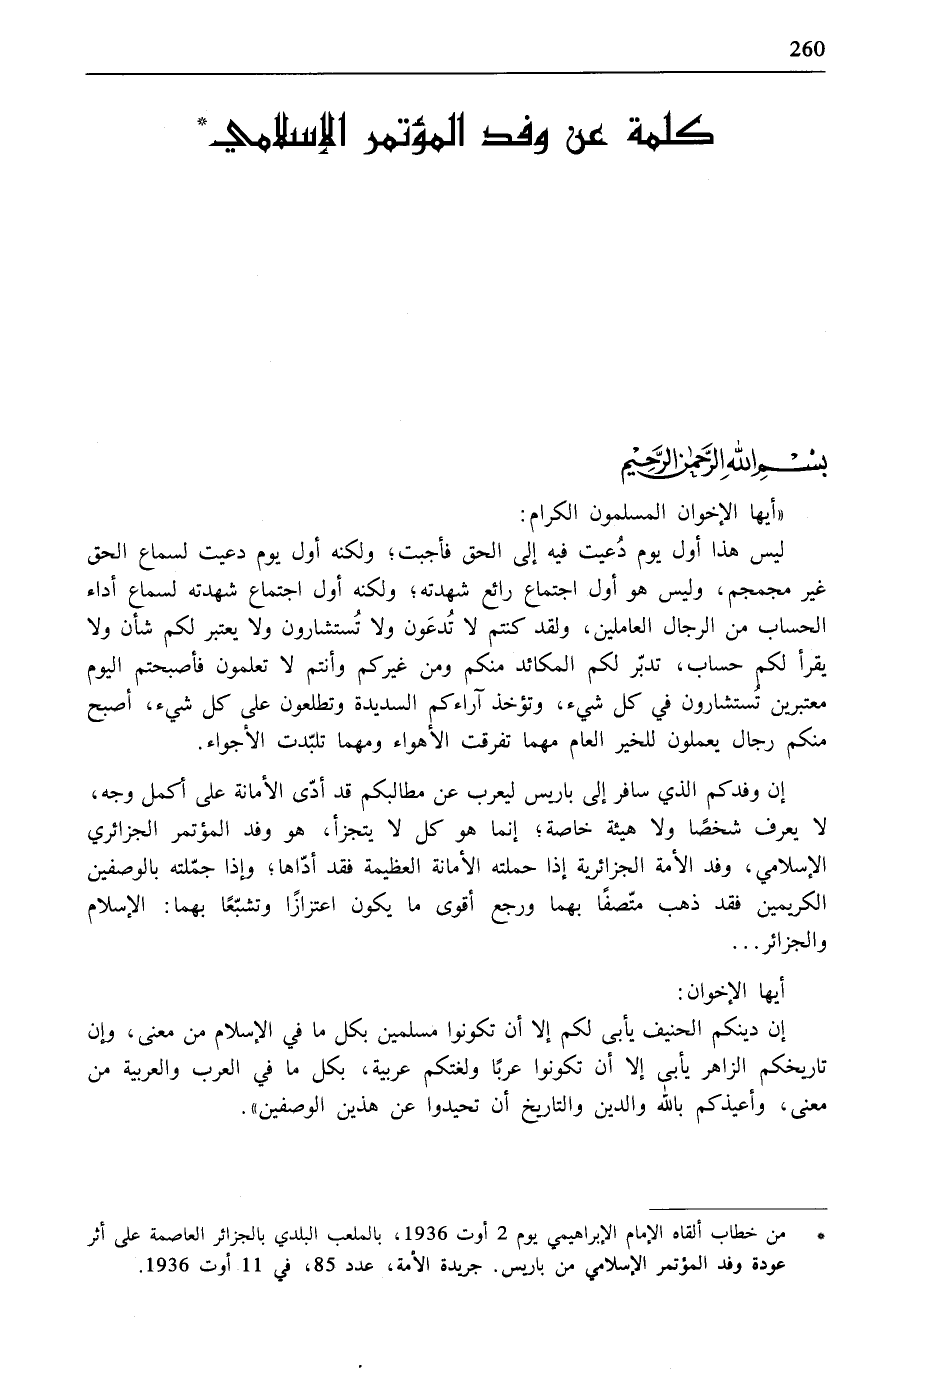 260
كلمة عن وفد المؤتمر الإسلامي*
بسم الله الرحمن الرحيم
«أيها الإخوان المسلمون الكرام:
ليس هذا أول يوم دُعيت فيه إلى الحق فأجبت؛ ولكنه أول يوم دعيت لسماع الحق
غير مجمجم، وليس هو أول اجتماع رائع شهدته؛ ولكنه أول اجتماع شهدته لسماع أداء
الحساب من الرجال العاملين، ولقد كنتم لا تُدعَون ولا تُستشارون ولا يعتبر لكم شأن ولا
يقرأ لكم حساب، تدبّر لكم المكائد منكم ومن غيركم وأنتم لا تعلمون فأصبحتم اليوم
معتبرين تُستشارون في كل شيء، وتؤخذ آراءكم السديدة وتطلعون على كل شيء، أصبح
منكم رجال يعملون للخير العام مهما تفرقت الأهواء ومهما تلبّدت الأجواء.
إن وفدكم الذي سافر إلى باريس ليعرب عن مطالبكم قد أدّى الأمانة على أكمل وجه،
لا يعرف شخصًا ولا هيئة خاصة؛ إنما هو كل لا يتجزأ، هو وفد المؤتمر الجزائري
الإسلامي، وفد الأمة الجزائرية إذا حملته الأمانة العظيمة فقد أدّاها؛ وإذا جمّلته بالوصفين
الكريمين فقد ذهب متّصفًا بهما ورجع أقوى ما يكون اعتزازًا وتشبّعًا بهما: الإسلام
والجزائر...
أيها الإخوان:
إن دينكم الحنيف يأبى لكم إلا أن تكونوا مسلمين بكل ما في الإسلام من معنى، وإن
تاريخكم الزاهر يأبى إلا أن تكونوا عربًا ولغتكم عربية، بكل ما في العرب والعربية من
معنى، وأعيذكم بالله والدين والتاريخ أن تحيدوا عن هذين الوصفين».
• من خطاب ألقاه الإمام الإبراهيمي يوم 2 أوت 1936، بالملعب البلدي بالجزائر العاصمة على أثر
عودة وفد المؤتمر الإسلامي من باريس. جريدة الأمة، عدد 85، في 11 أوت 1936.